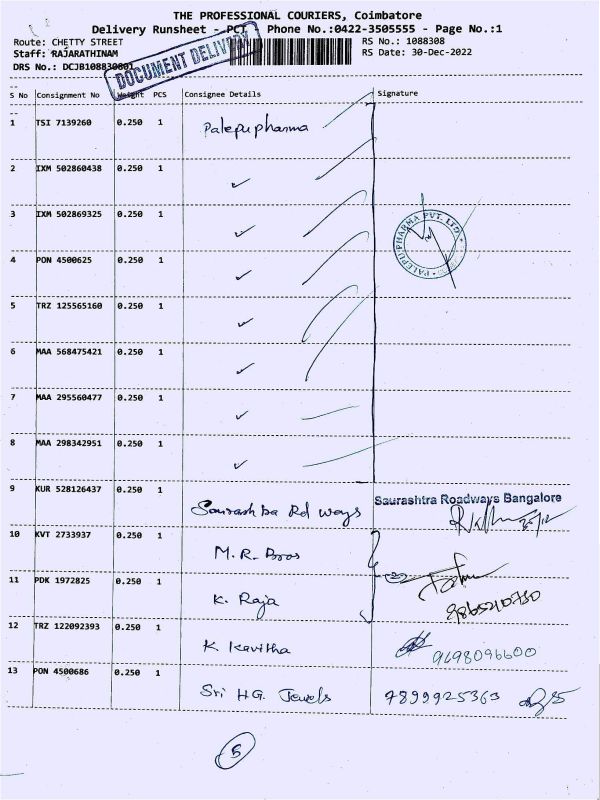 THE PROFESSIONAL COURIERS, Coimbatore
Delivery Runsheet - PCT Phone No.:0422-3505555 - Page No.:1
Route: CHETTY STREET RS No.: 1088308
Staff: RAJARATHINAM RS Date: 30-Dec-2022
DRS No.: DCJB108830801
DOCUMENT DELIVERY
S No Consignment No Weight PCS Consignee Details Signature
1 TSI 7139260 0.250 1 Palepupharma
2 IXM 502860438 0.250 1 ✓
3 IXM 502869325 0.250 1 ✓
PALEPU PHARMA PVT. LTD.
4 PON 4500625 0.250 1 ✓
5 TRZ 125565160 0.250 1 ✓
6 MAA 568475421 0.250 1 ✓
7 MAA 295560477 0.250 1 ✓
8 MAA 298342951 0.250 1 ✓
9 KUR 528126437 0.250 1 Saurashtra Rd ways Saurashtra Roadways Bangalore
10 KVT 2733937 0.250 1 M.R. Bros
11 PDK 1972825 0.250 1 K. Raja
12 TRZ 122092393 0.250 1 K Kavitha 9698096600
13 PON 4500686 0.250 1 Sri H.G. Jewels 7899925363
5